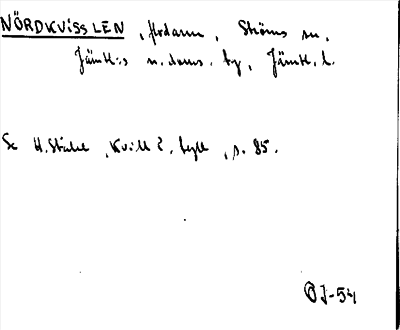 NÖRDKVISSLEN, flodarm, Ströms sn,
Jämtl:s n. doms. by, Jämtl. l.
Se H. Ståhl, Kvill ?, s. 85.
OJ-54